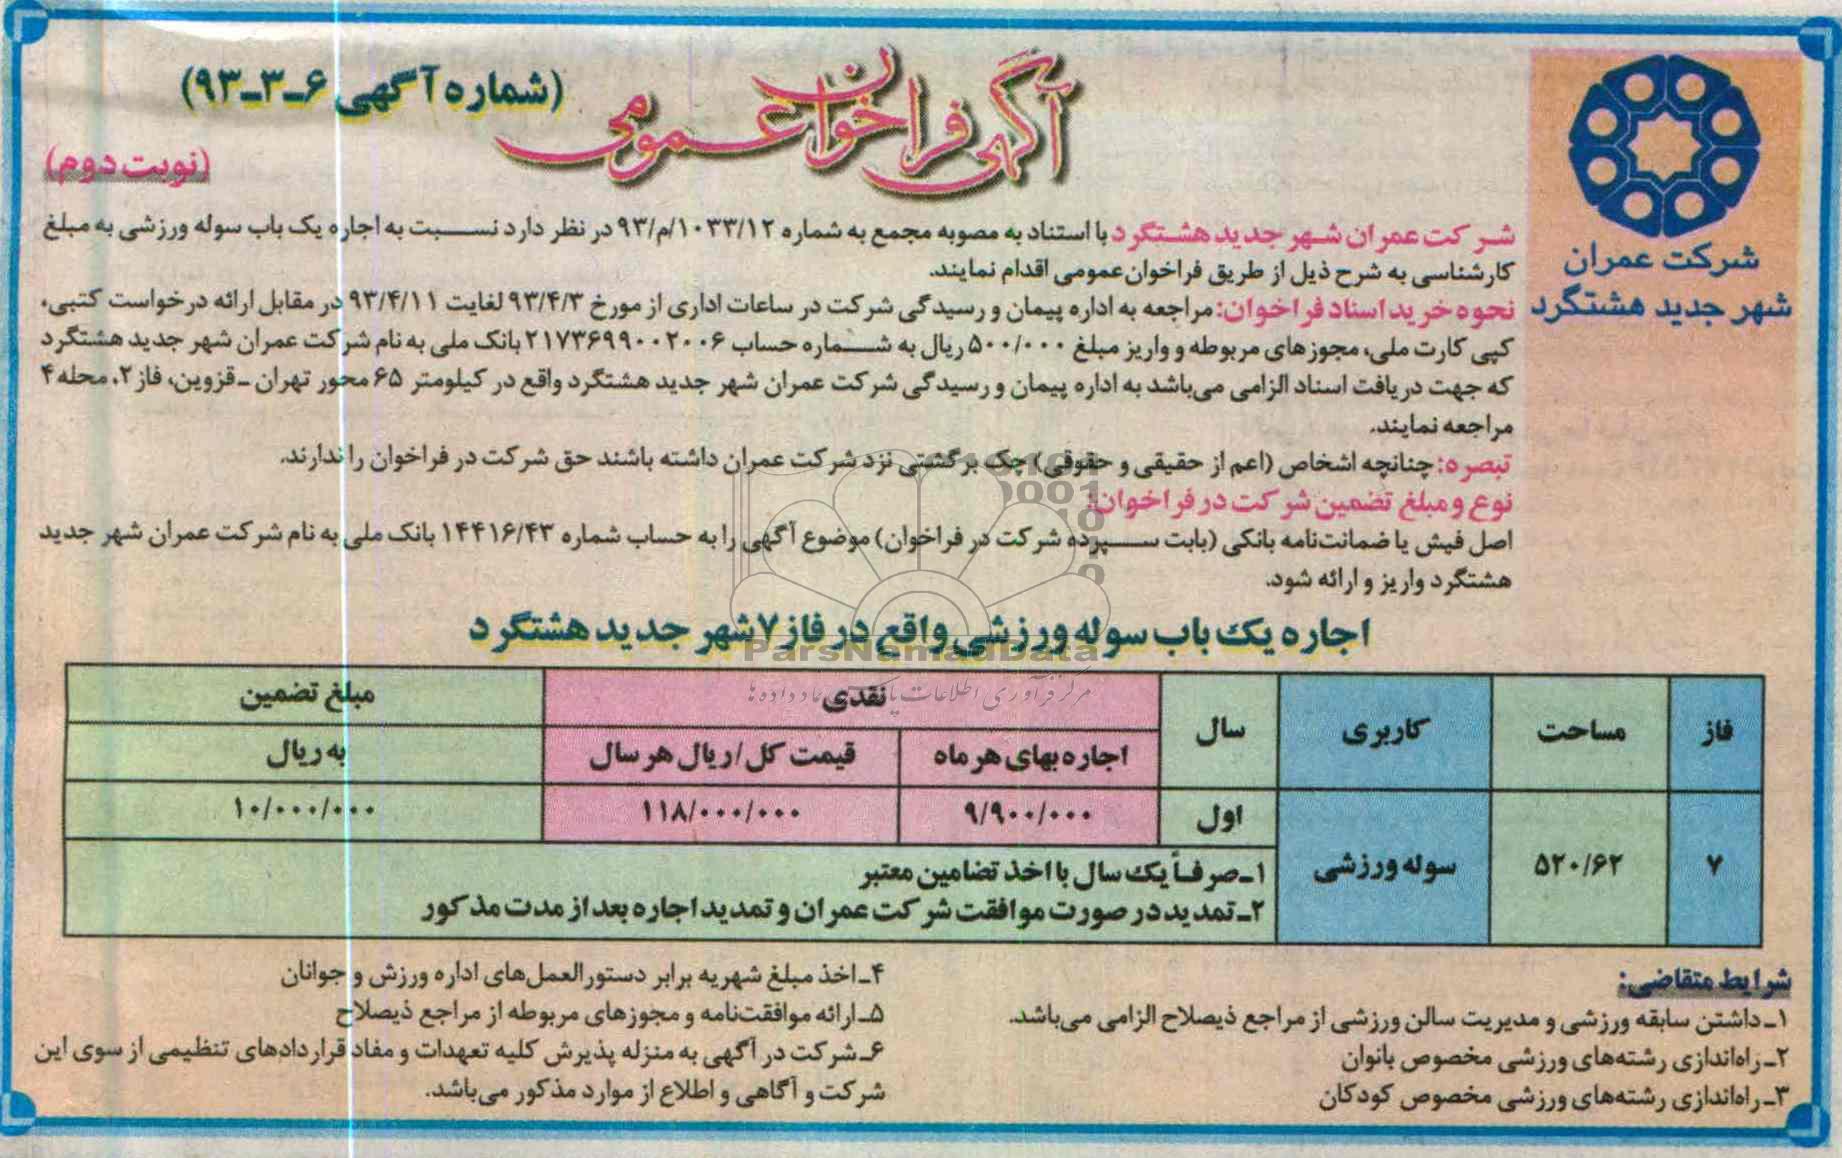 آگهی فراخوان عمومی
(شماره آگهی ۶ـ۳ـ۹۳)
(نوبت دوم)
شرکت عمران
شهر جدید هشتگرد
شرکت عمران شهر جدید هشتگرد با استناد به مصوبه مجمع به شماره ۱۰۳۳/۱۲/م/۹۳ در نظر دارد نسبت به اجاره یک باب سوله ورزشی به مبلغ
کارشناسی به شرح ذیل از طریق فراخوان عمومی اقدام نمایند.
نحوه خرید اسناد فراخوان: مراجعه به اداره پیمان و رسیدگی شرکت در ساعات اداری از مورخ ۹۳/۴/۳ لغایت ۹۳/۴/۱۱ در مقابل ارائه درخواست کتبی،
کپی کارت ملی، مجوزهای مربوطه و واریز مبلغ ۵۰۰/۰۰۰ ریال به شماره حساب ۲۱۷۳۶۹۹۰۰۲۰۰۶ بانک ملی به نام شرکت عمران شهر جدید هشتگرد
که جهت دریافت اسناد الزامی می‌باشد به اداره پیمان و رسیدگی شرکت عمران شهر جدید هشتگرد واقع در کیلومتر ۶۵ محور تهران ـ قزوین، فاز ۲، محله ۴
مراجعه نمایند.
تبصره: چنانچه اشخاص (اعم از حقیقی و حقوقی) چک برگشتی نزد شرکت عمران داشته باشند حق شرکت در فراخوان را ندارند.
نوع و مبلغ تضمین شرکت در فراخوان:
اصل فیش یا ضمانت‌نامه بانکی (بابت سپرده شرکت در فراخوان) موضوع آگهی را به حساب شماره ۱۴۴۱۶/۴۳ بانک ملی به نام شرکت عمران شهر جدید
هشتگرد واریز و ارائه شود.
اجاره یک باب سوله ورزشی واقع در فاز ۷ شهر جدید هشتگرد
ParsNamadData
فاز مساحت کاربری سال نقدی مبلغ تضمین
اجاره بهای هر ماه قیمت کل/ریال هر سال به ریال
۷ ۵۲۰/۶۲ سوله ورزشی اول ۹/۹۰۰/۰۰۰ ۱۱۸/۰۰۰/۰۰۰ ۱۰/۰۰۰/۰۰۰
۱ـ صرفاً یک سال با اخذ تضامین معتبر
۲ـ تمدید در صورت موافقت شرکت عمران و تمدید اجاره بعد از مدت مذکور
شرایط متقاضی:
۱ـ داشتن سابقه ورزشی و مدیریت سالن ورزشی از مراجع ذیصلاح الزامی می‌باشد.
۲ـ راه‌اندازی رشته‌های ورزشی مخصوص بانوان
۳ـ راه‌اندازی رشته‌های ورزشی مخصوص کودکان
۴ـ اخذ مبلغ شهریه برابر دستورالعمل‌های اداره ورزش و جوانان
۵ـ ارائه موافقت‌نامه و مجوزهای مربوطه از مراجع ذیصلاح
۶ـ شرکت در آگهی به منزله پذیرش کلیه تعهدات و مفاد قراردادهای تنظیمی از سوی این
شرکت و آگاهی و اطلاع از موارد مذکور می‌باشد.